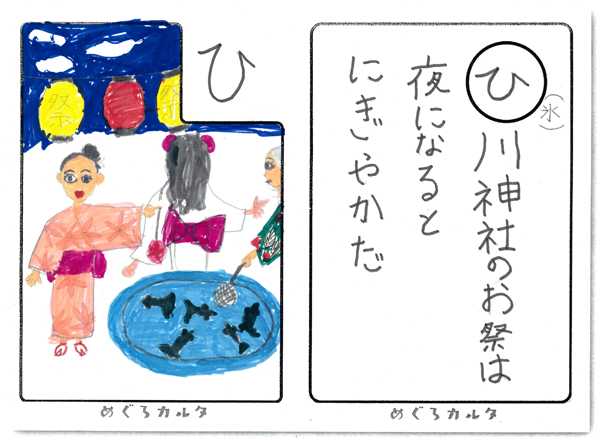 祭
ひ
めぐろカルタ
ひ川神社のお祭は
(氷)
夜になると
にぎやかだ
めぐろカルタ